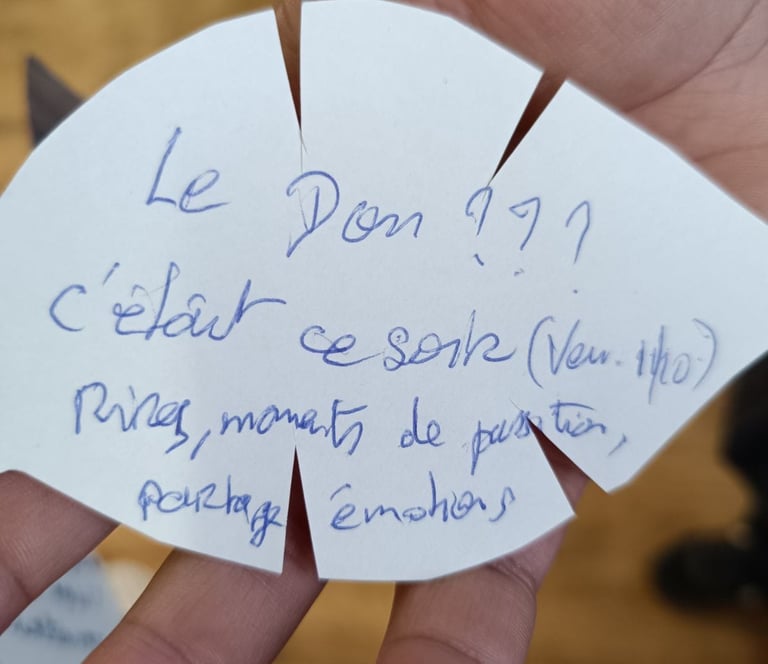 Le Don ???
c'était ce soir (Ven. 1/10)
Rires, moments de passion,
partage émotions